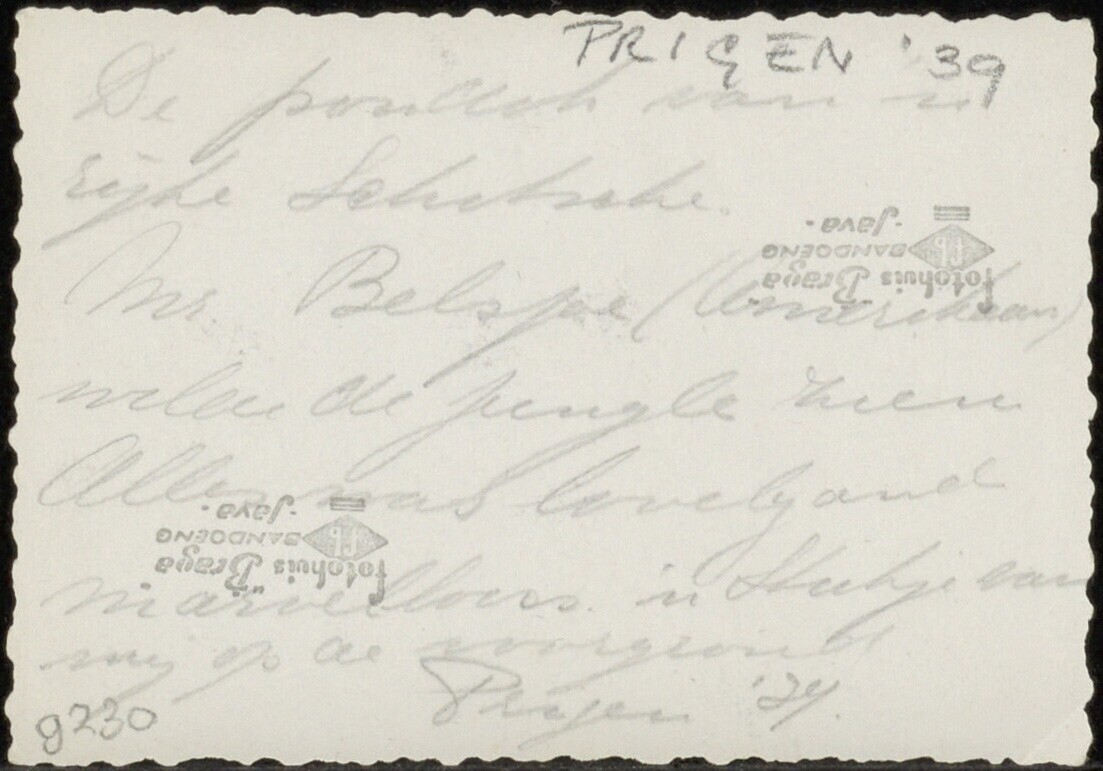 PRIGEN '39
De pondok van n
rijke Schotsche.
Mr. Belspoe (Amerikaan)
wilde de jungle zien
Alles was lovely and
marvellous. n Stukje van
mij op de voorgrond.
Prigen '39.
9230
fotohuis Braga
BANDOENG
- Java -
fb
fotohuis Braga
BANDOENG
- Java -
fb